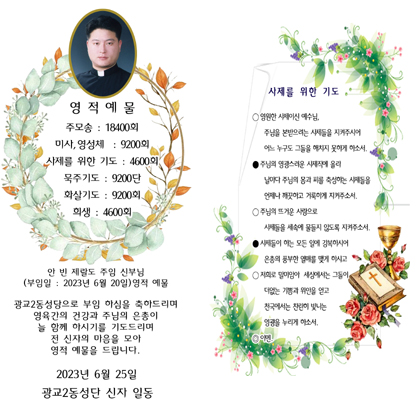 영적예물
주모송 : 18400회
미사,영성체 : 9200회
사제를 위한 기도 : 4600회
묵주기도 : 9200단
화살기도 : 9200회
희생 : 4600회
안 빈 제랄도 주임 신부님
(부임일 : 2023년 6월 20일)영적 예물
광교2동성당으로 부임 하심을 축하드리며
영육간의 건강과 주님의 은총이
늘 함께 하시기를 기도드리며
전 신자의 마음을 모아
영적 예물을 드립니다.
2023년 6월 25일
광교2동성단 신자 일동
사제를 위한 기도
○영원한 사제이신 예수님,
주님을 본받으려는 사제들을 지켜주시어
어느 누구도 그들을 해치지 못하게 하소서.
●주님의 영광스러운 사제직에 올라
날마다 주님의 몸과 피를 축성하는 사제들을
언제나 깨끗하고 거룩하게 지켜주소서.
○주님의 뜨거운 사랑으로
사제들을 세속에 물들지 않도록 지켜주소서.
●사제들이 하는 모든 일에 강복하시어
은총의 풍부한 열매를 맺게 하시고
○저희로 말미암아 세상에서는 그들이
더없는 기쁨과 위안을 얻고
천국에서는 찬란히 빛나는
영광을 누리게 하소서.
◎아멘